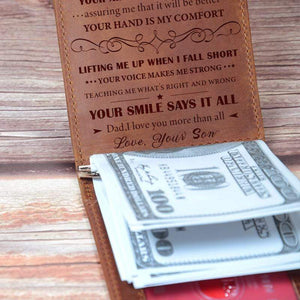 ...assuring me that it will be better
YOUR HAND IS MY COMFORT
LIFTING ME UP WHEN I FALL SHORT
YOUR VOICE MAKES ME STRONG
TEACHING ME WHAT'S RIGHT AND WRONG
YOUR SMILE SAYS IT ALL
Dad,I love you more than all
Love, Your Son
100
100